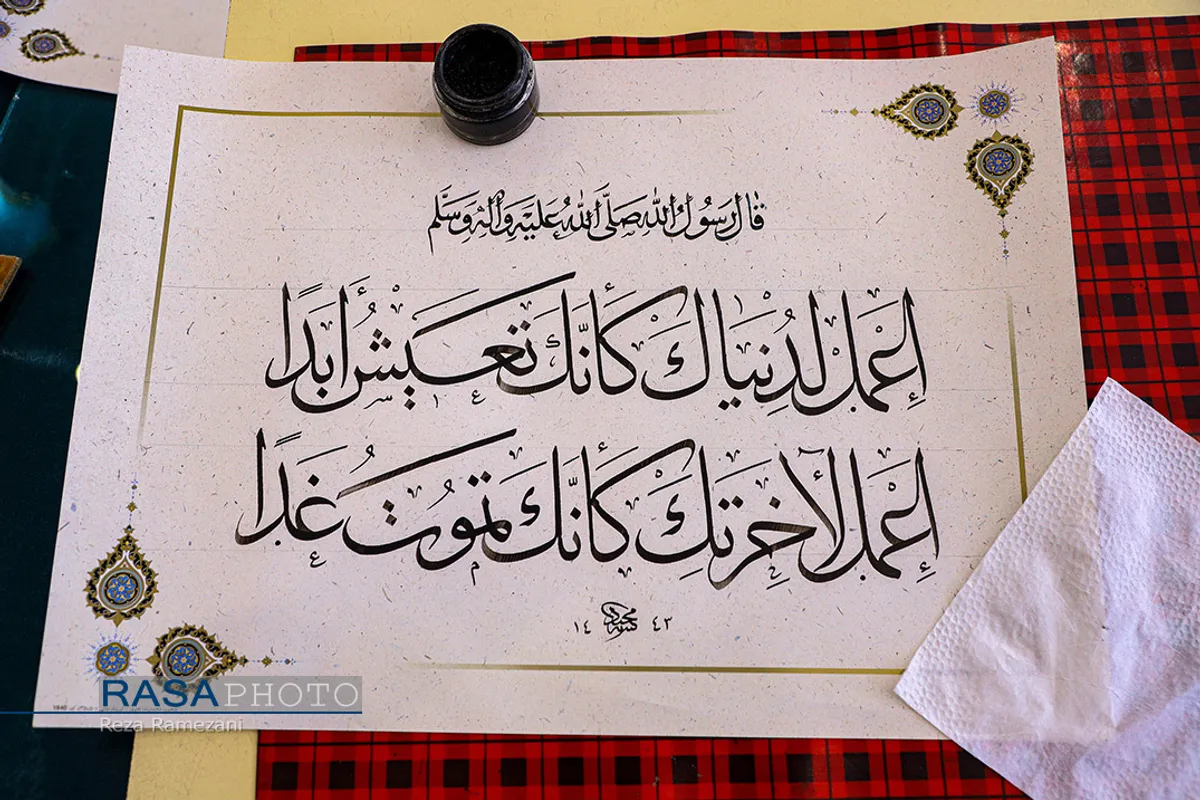 قال رسول الله صلى الله عليه وآله وسلم
اِعْمَل لدُنياكَ كأنَّكَ تَعيشُ أبَدًا
اِعْمَل لآخِرَتِكَ كأنَّكَ تَموتُ غَدًا
١٤ ٤٣
RASAPHOTO
Reza Ramezani